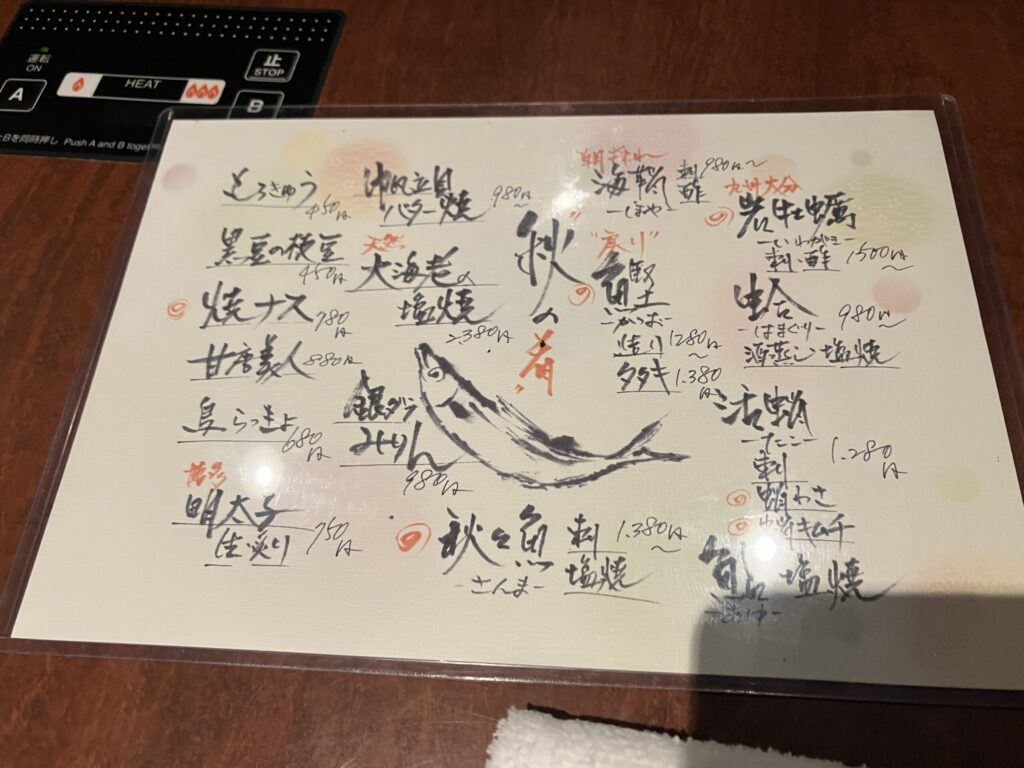 運転
ON
A
HEAT
止
STOP
B
Bを同時押し Push A and B togethe
"秋の肴"
朝まずめ
海鞘 刺 980円〜
酢
-ほや-
九州大分
岩牡蠣
-いわがき-
刺・酢 1500円〜
"戻り"
鰹
-かつお-
造り 1280円〜
タタキ 1.380円
蛤 980円〜
-はまぐり-
酒蒸し 塩焼
活蛸
-たこ-
刺 1.280円
蛸わさ
蛸キムチ
鮎 塩焼
-あゆ-
秋刀魚 刺 1.380円〜
-さんま- 塩焼
帆立貝
バター焼 980円〜
天然
大海老の
塩焼
2380円
銀ダラ
みりん
980円
もろきゅう
450円
黒豆の枝豆
450円
焼ナス
780円
甘唐美人 880円
島らっきょ
680円
博多
明太子
生・炙り 750円